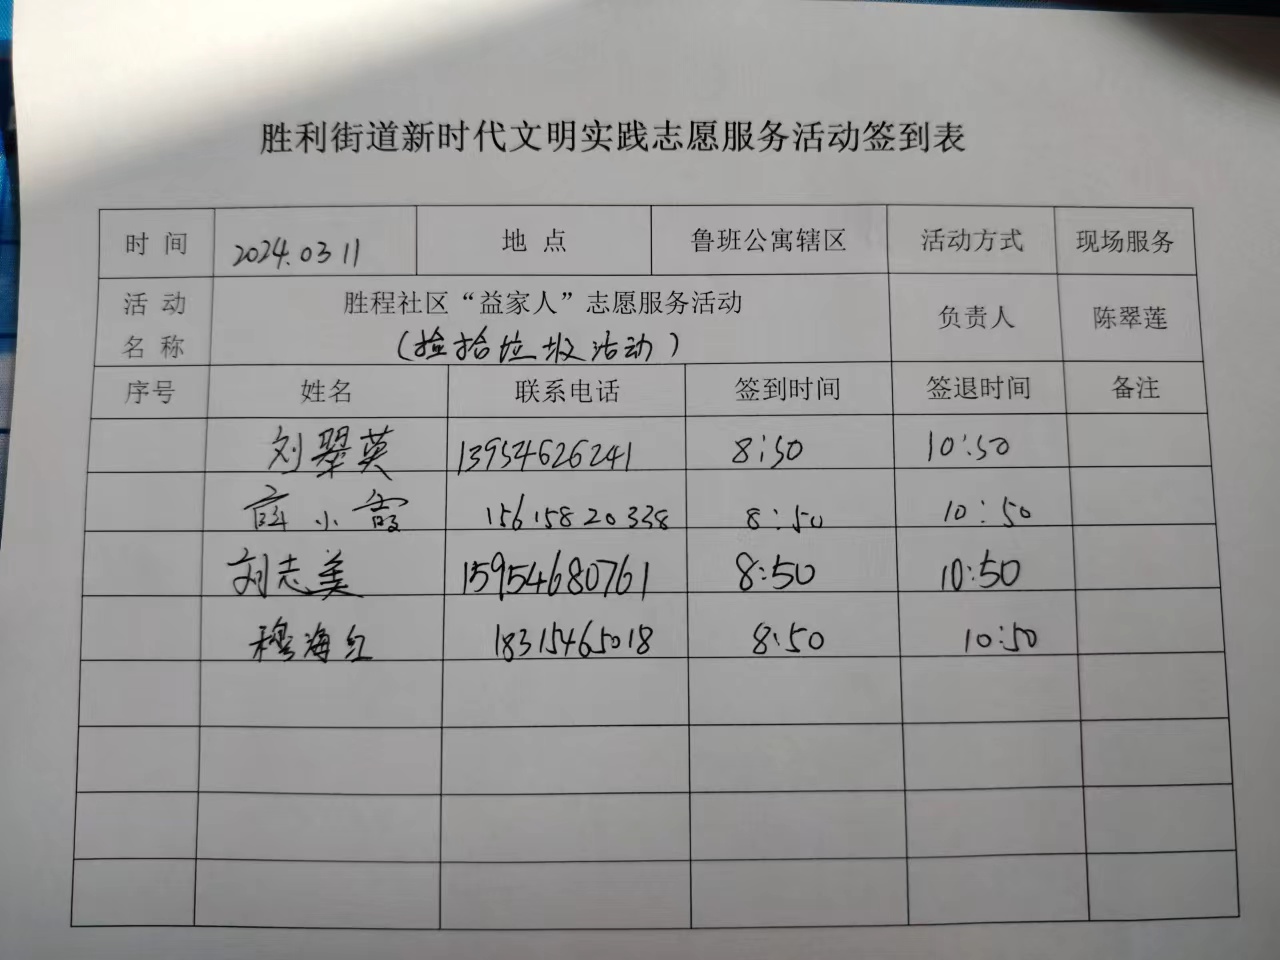 胜利街道新时代文明实践志愿服务活动签到表
时 间 2024.03 11 地 点 鲁班公寓辖区 活动方式 现场服务
活 动 名 称 胜程社区“益家人”志愿服务活动 负责人 陈翠莲
(捡拾垃圾活动)
序号 姓名 联系电话 签到时间 签退时间 备注
刘翠英 13954626241 8:50 10:50
薛小霞 15615820338 8:50 10:50
刘志美 15954680761 8:50 10:50
穆海红 18315465018 8:50 10:50